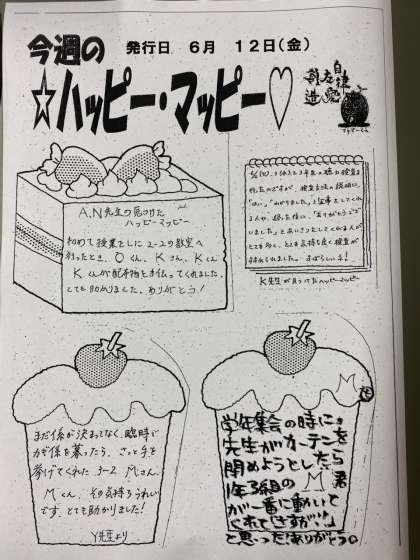 今週の
発行日 6月 12日(金)
☆ハッピー・マッピー♡
自律
前進
A.N先生の見つけた
ハッピーマッピー
初めて授業をしに2-2の教室へ
行ったとき、Oくん、Kさん、Kくん
Kくんが配布物を手伝ってくれました。
とても助かりました。ありがとう!
「はい。」「わかりました。」と返事をしてくれ
る人や、「ありがとうござ
いました」とあいさつしてくれる人が
とても多く、とても気持ち良く検査が
行われました。すばらしい!
K先生が見つけたハッピーマッピー
まだ係が決まってなく、臨時で
カギ係を募ったら、さっと手を
挙げてくれた 3-2 Mさん、
Mくん、その気持ちうれしい
です。とても助かりました!
Y先生より
学年集会の時に、
先生がカーテンを
閉めようとしたら
1年3組のM君
が一番に動いて
くれて「さすが!!」
と思った!ありがとう。